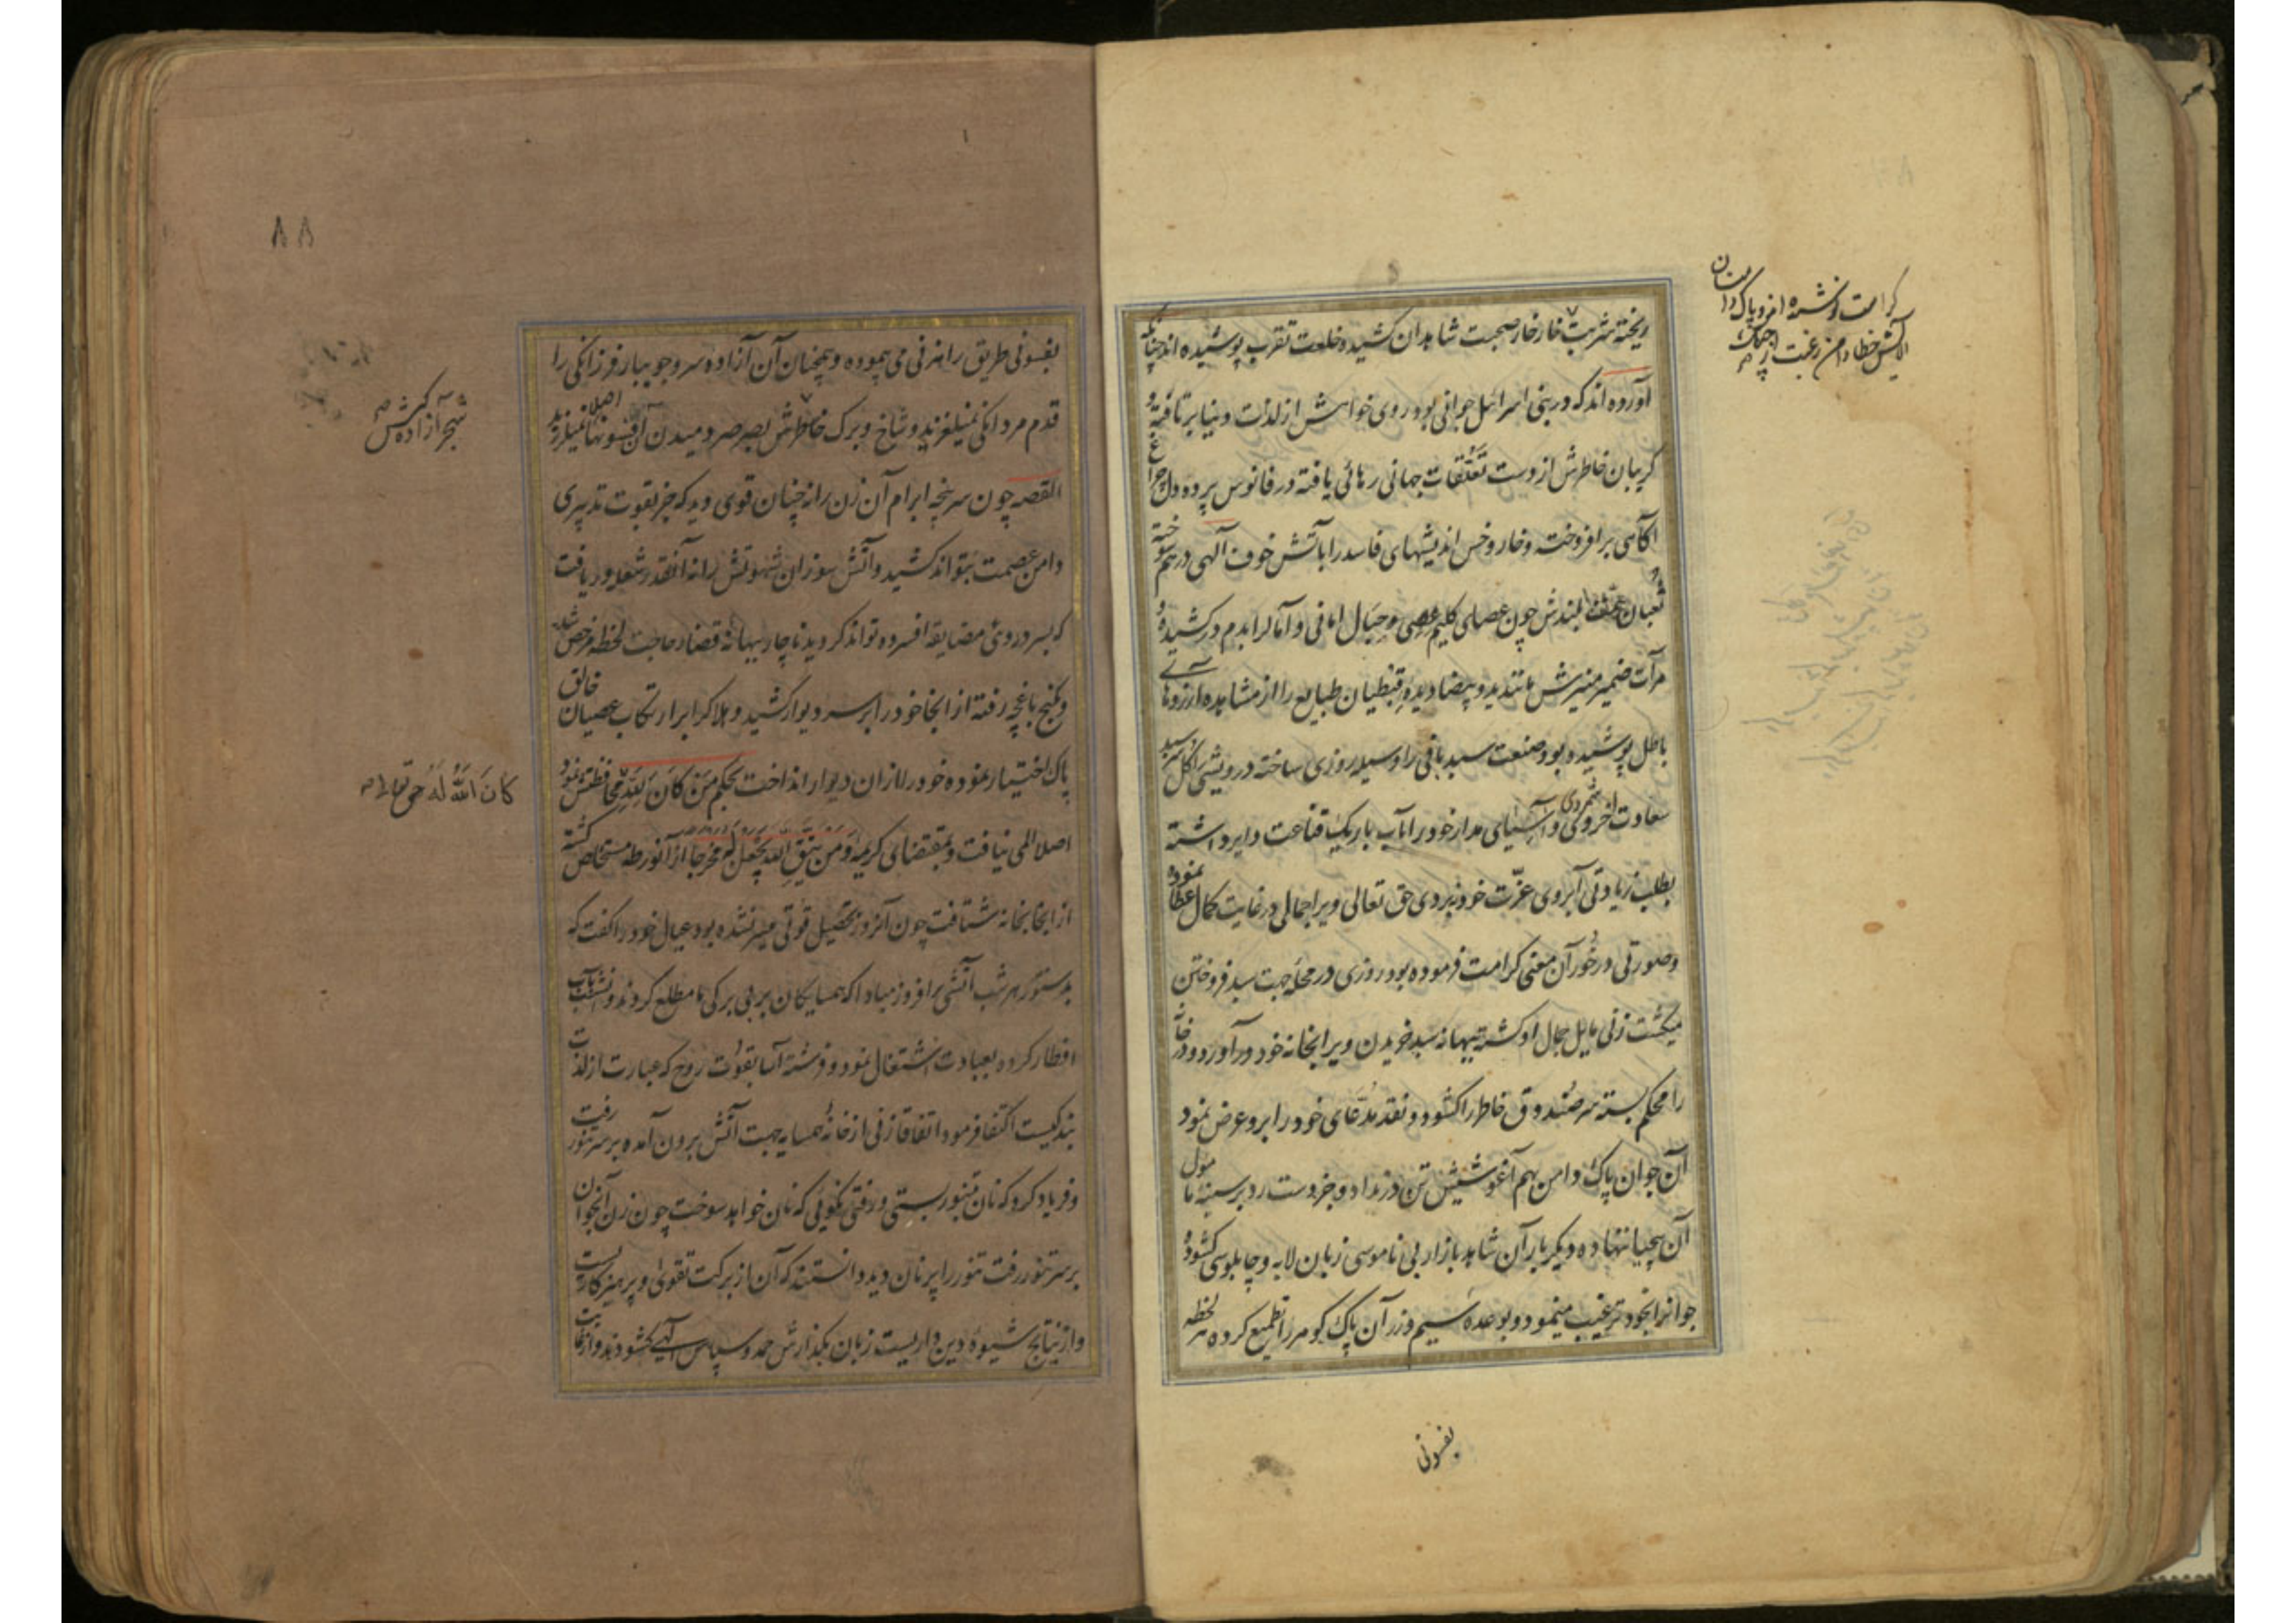 ریخته شربت خار خار صحبت شاهدان کشیده و خلعت تقرب پوشیده اند چنانکه
آورده اند که در بنی اسرائیل جوانی بود روی خواهش از لذت دنیا برتافته و
گریبان خاطرش از دست تعلقات جهانی رهائی یافته در فانوس پرده دل چراغ
آگاهی برافروخته و خار و خس اندیشهای فاسد را بآتش خوف آلهی درهم سوخته
ثعبان همت بلندش چون عصای کلیم عصی و حبال امانی و آمال را بدم درکشیده و
مرآت ضمیر منیرش مانند ید و بیضا دیده قبطیان طبایع را از مشاهده آرزوهای
باطل پوشیده بود صنعت سبد بافی را وسیله روزی ساخته درویشی را کل سر سبد
سعادت اخروی و آسیای مدار خود را بآب باریک قناعت دایر داشته
بطلب زیادتی آبروی عزت خود نبردی حق تعالی ویرا جمالی در غایت کمال عطا نموده
وصورتی درخور آن معنی کرامت فرموده بود روزی در محله جهت سبد فروختن
میگشت زنی مایل جمال او گشته ببهانه سبد خریدن ویرا بخانه خود درآورد و در خانه
را محکم بسته سر صندوق خاطر را گشود و نقد مدعای خود را برو عرض نمود
آن جوان پاک دامن بهم آغوشیش تن درنداد و جز دست رد بر سینه مامول
آن بیحیا ننهاده دیگر بار آن شاهد بازار بی ناموسی زبان لابه و چاپلوسی گشوده
جوانرا بخود ترغیب مینمود و بوعده سیم و زر آن پاک گوهر را تطمیع کرده هر لحظه
بفسونی
کرامت
الایش خطا دامن رغبت
٨٨
بفسونی طریق راهزنی می پیموده و همچنان آن آزاده سرو جویبار فرزانگی را
قدم مردانگی نمیلغزید و شاخ و برک خاطرش بصرصر دمیدن آن فسونها اصلا نمیلرزید
القصه چون سرپنجه ابرام آن زن را نه چنان قوی دید که جز بقوت تدبیری
دامن عصمت بتواند کشید و آتش سوزان شهوتش را نه آنقدر شعله ور یافت
که بسردروئی مضایقه افسرده تواند کردید ناچار ببهانه قضاء حاجت لحظه مرخص شده
و بکنج باغچه رفته از انجا خود را بر سر دیوار کشید و هلاک را بر ارتکاب عصیان خالق
پاک اختیار نموده خود را از ان دیوار انداخت بحکم من کان لله محافظتش نمود
اصلا المی نیافت و بمقتضای کریمه ومن یتق الله یجعل له مخرجا از آنورطه مستخلص گشته
از انجا بخانه شتافت چون آنروز تحصیل قوتی میسر نشده بود عیال خود را گفت که
بدستور هر شب آتشی برافروز مبادا که همسایکان بر بی برکی ما مطلع کردند و آنشب بآب
افطار کرده بعبادت اشتغال نمود و فرشته آسا بقوت روح که عبارت از لذت
بندکیست اکتفا فرمود اتفاقا زنی از خانه همسایه جهت آتش برون آمده بر سر تنور رفت
و فریاد کرد که نان بتنور بستی و رفتی نکوئی که نان خواهد سوخت چون زن آنجوان
بر سر تنور رفت تنور را پر نان دید دانستند که آن از برکت تقوی و پرهیزکاریست
و از نتایج شیوه دین داریست زبان بکذارش حمد و سپاس آلهی گشودند و از غایت
شجر آزاده کیش
کان الله له حق تعالی